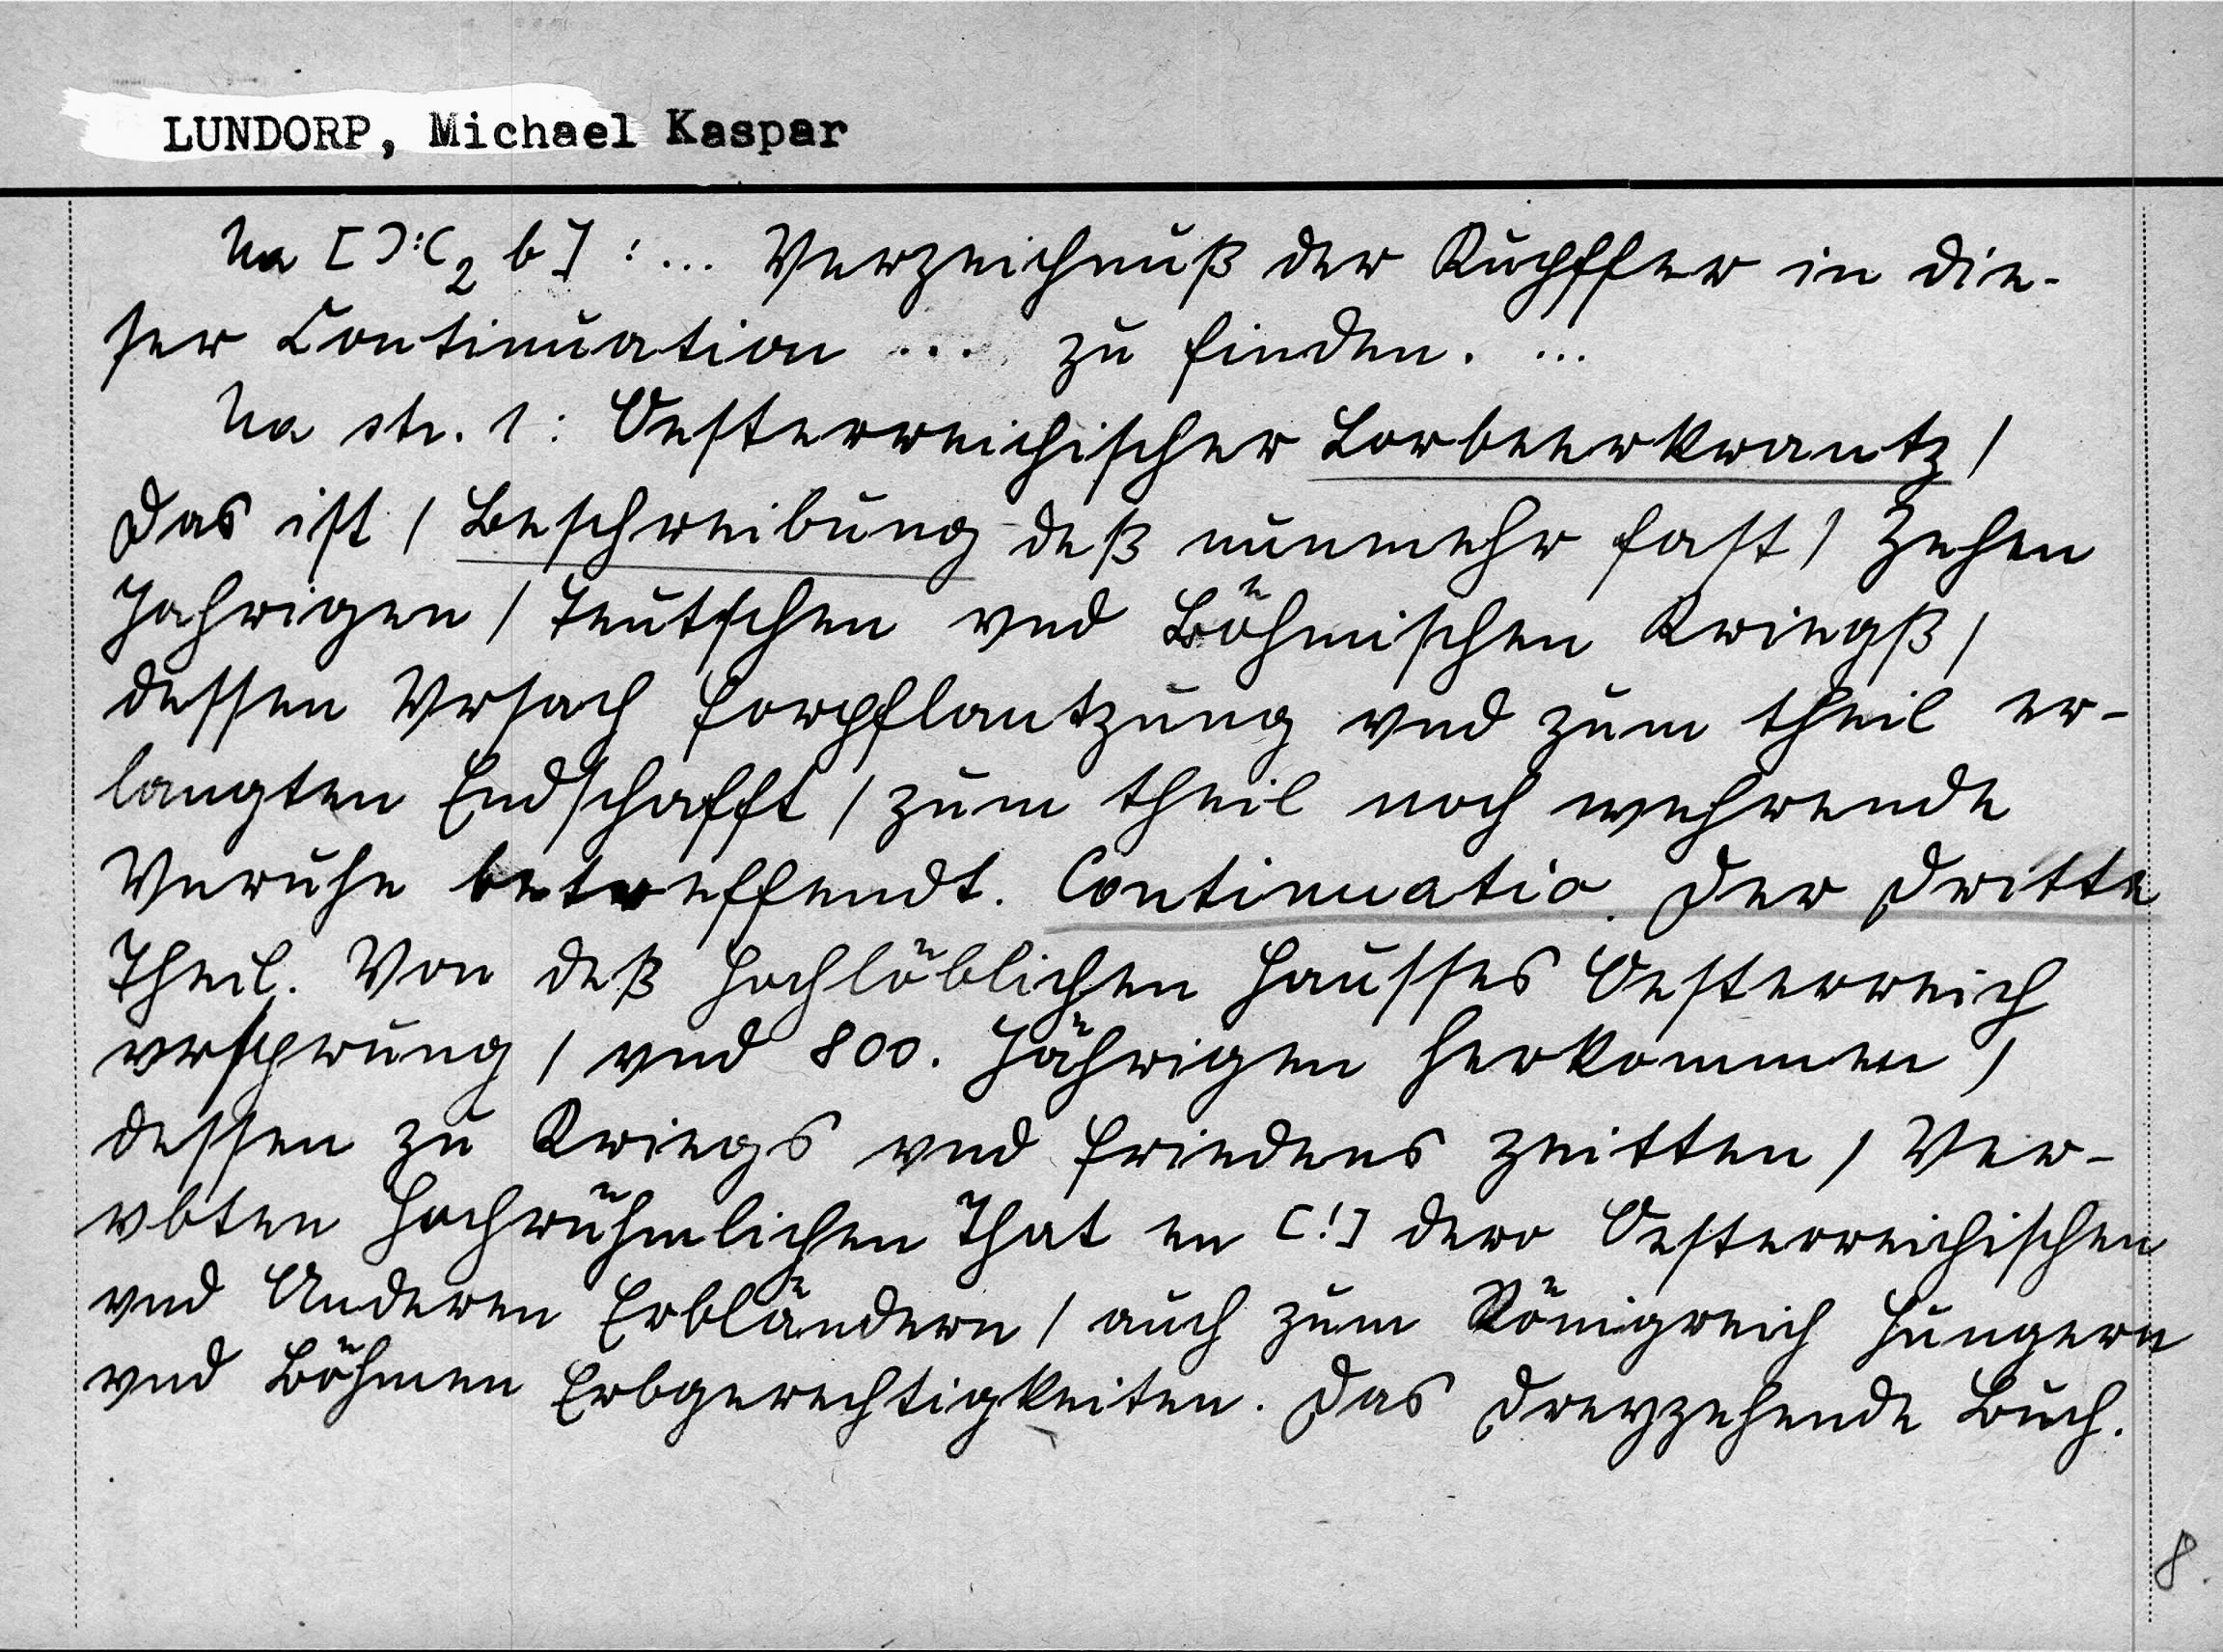 LUNDORP, Michael Kaspar
Na [):(2 b] : ... Verzeichnuß der Kupffer in die-
ser Continuation ... zu finden. ...
Na str. 1: Oesterreichischer Lorbeerkrantz /
Das ist / Beschreibung deß nunmehr fast / Zehen
Jahrigen / Teutschen vnd Böhmischen Kriegß /
dessen Vrsach forpflantzung vnd zum theil er-
langten Endschafft / zum theil noch wehrende
Vnruhe betreffendt. Continuatio. Der Dritte
Theil. Von deß Hochlöblichen Hausses Oesterreich
vrsprung / vnd 800. Jährigen Herkommen /
dessen zu Kriegs vnd Friedens zeitten / Ver-
vbten Hochrühmlichen That en [!] dero Oesterreichischen
vnd Anderen Erbländern / auch zum Königreich Hungern
vnd Böhmen Erbgerechtigkeiten. Das Dreyzehende Buch.
8.